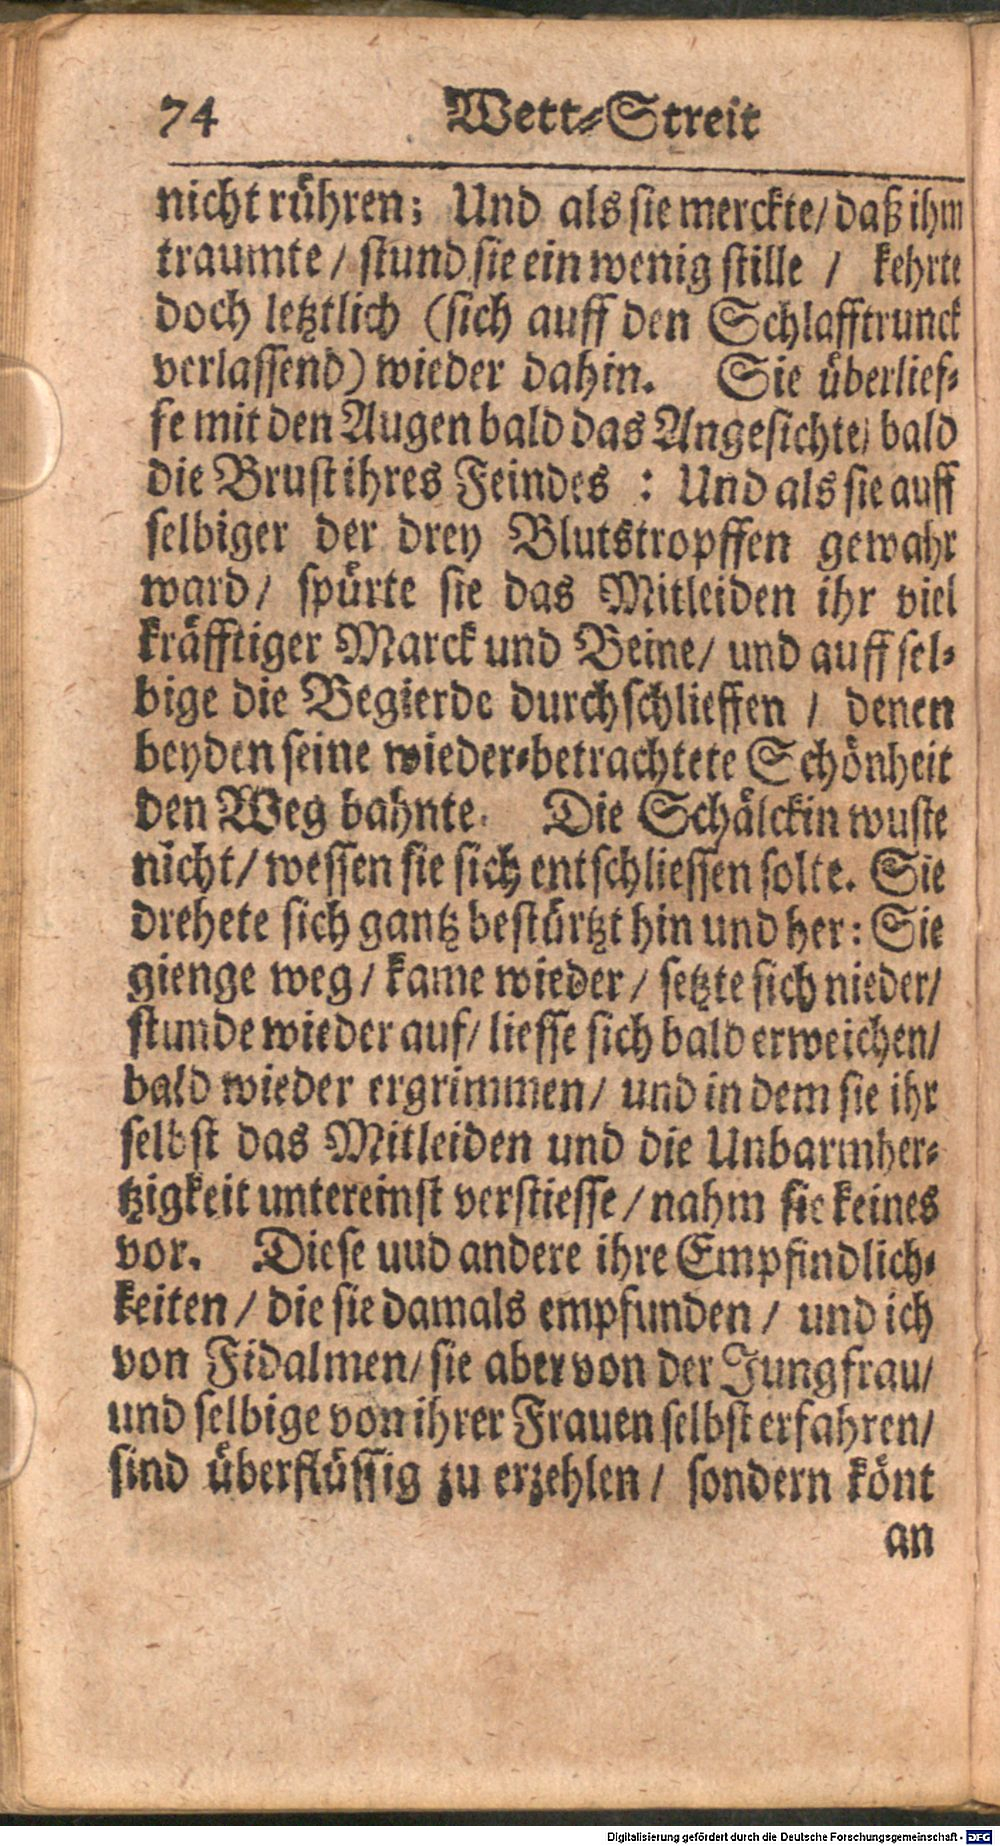 74 Wett-Streit
nicht rühren; Und als sie merckte/ daß ihm
traumte / stund sie ein wenig stille / kehrte
doch letztlich (sich auff den Schlafftrunck
verlassend) wieder dahin. Sie überlief-
fe mit den Augen bald das Angesichte/ bald
die Brust ihres Feindes : Und als sie auff
selbiger der drey Blutstropffen gewahr
ward/ spürte sie das Mitleiden ihr viel
kräfftiger Marck und Beine/ und auff sel-
bige die Begierde durchschlieffen / denen
beyden seine wieder-betrachtete Schönheit
den Weg bahnte. Die Schälckin wuste
nicht/ wessen sie sich entschliessen solte. Sie
drehete sich gantz bestürtzt hin und her: Sie
gienge weg/ kame wieder/ setzte sich nieder/
stunde wieder auf/ liesse sich bald erweichen/
bald wieder ergrimmen/ und in dem sie ihr
selbst das Mitleiden und die Unbarmher-
tzigkeit untereinst verstiesse/ nahm sie keines
vor. Diese uud andere ihre Empfindlich-
keiten / die sie damals empfunden / und ich
von Fidalmen/ sie aber von der Jungfrau/
und selbige von ihrer Frauen selbst erfahren/
sind überflüssig zu erzehlen / sondern könt
an
Digitalisierung gefördert durch die Deutsche Forschungsgemeinschaft - DFG